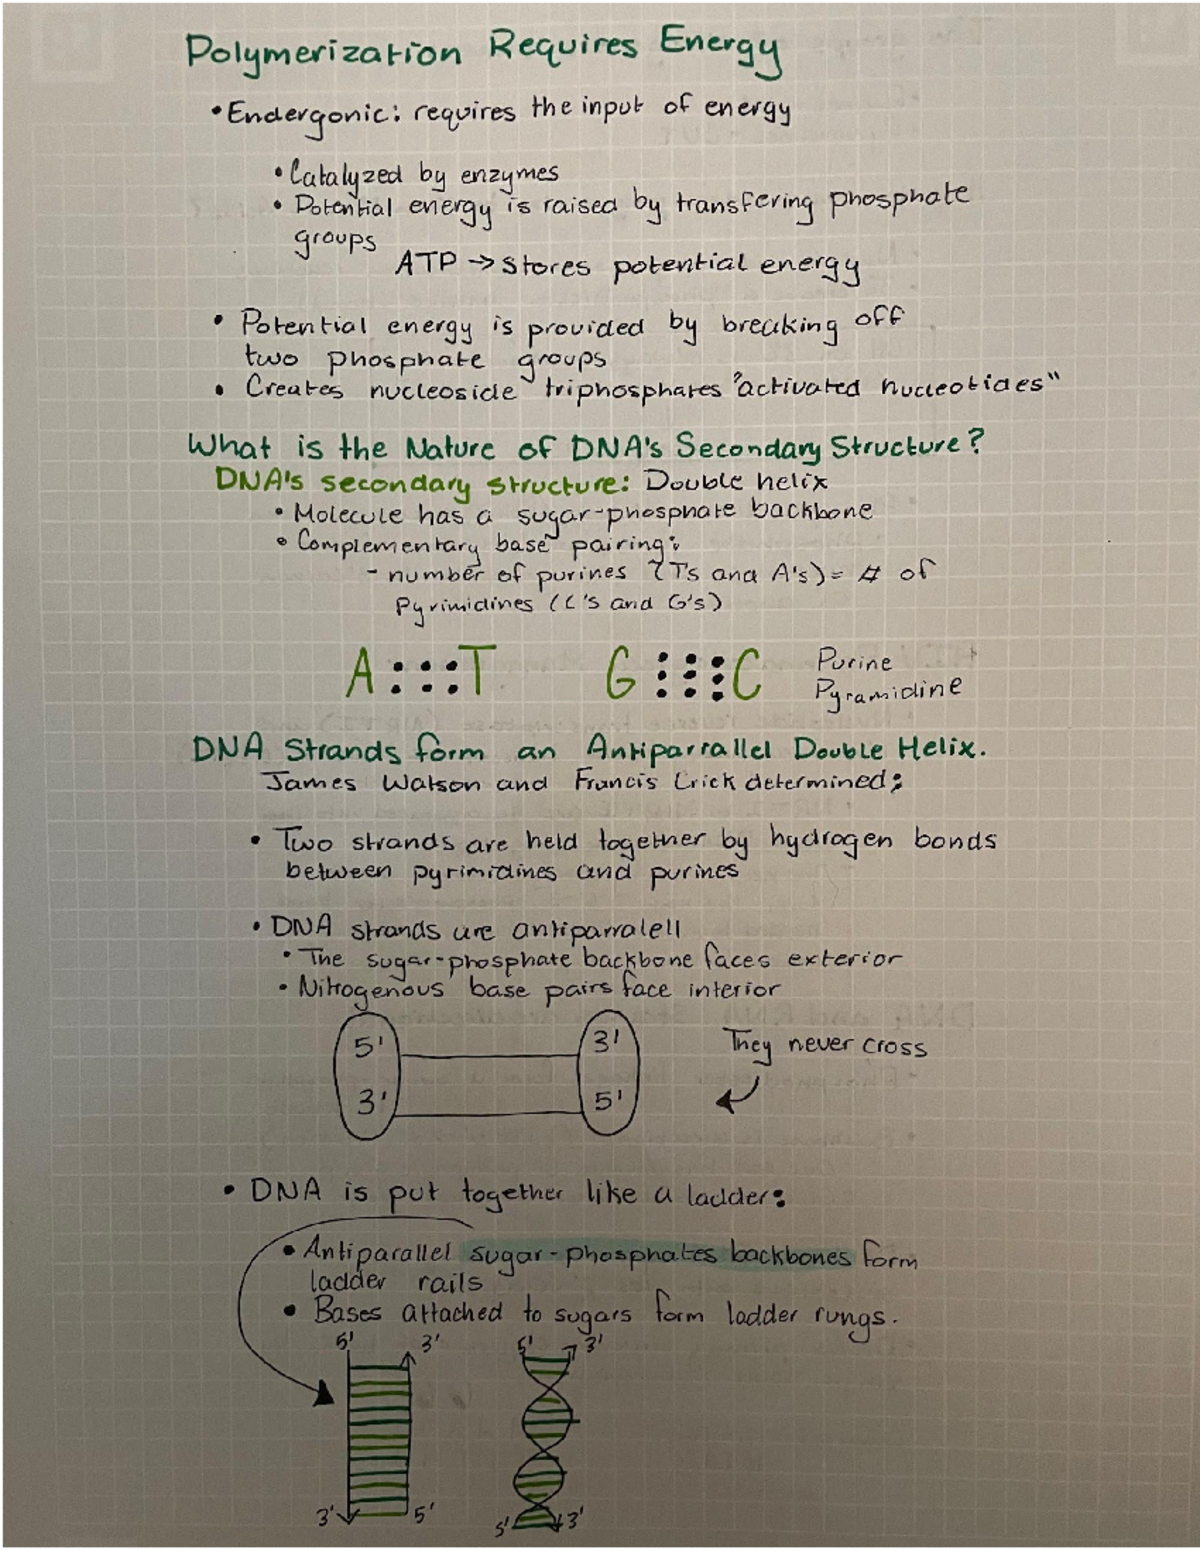 Polymerization Requires Energy
• Endergonic: requires the input of energy
• Catalyzed by enzymes
• Potential energy is raised by transfering phosphate
groups
ATP → stores potential energy
• Potential energy is provided by breaking off
two phosphate groups
• Creates nucleoside triphosphates "activated nucleotides"
What is the Nature of DNA's Secondary Structure?
DNA's secondary structure: Double helix
• Molecule has a sugar-phosphate backbone
• Complementary base pairing:
- number of purines (T's and A's) = # of
Pyrimidines (C's and G's)
A T G C Purine
Pyramidine
DNA Strands form an Antiparrallel Double Helix.
James Watson and Francis Crick determined:
• Two strands are held together by hydrogen bonds
between pyrimidines and purines
• DNA strands are antiparralell
• The sugar-phosphate backbone faces exterior
• Nitrogenous base pairs face interior
5' 3' They never cross
3' 5'
• DNA is put together like a ladder:
• Antiparallel sugar-phosphates backbones form
ladder rails
• Bases attached to sugars form ladder rungs.
5' 3' 5' 3'
3' 5' 5' 3'